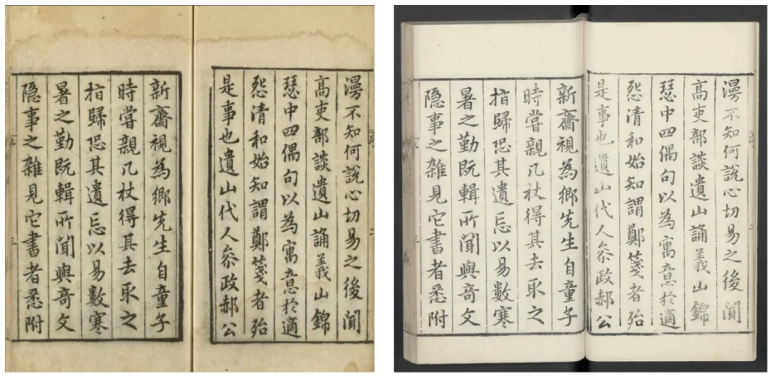 漫不知何說心切易之後聞
高吏部談遺山誦義山錦
瑟中四偶句以為寓意於適
怨清和始知謂鄭箋者殆
是事也遺山代人叅政郝公
新齋視為鄉先生自童子
時嘗親几杖得其去取之
指歸恐其遺忘以易數寒
暑之勤既輯所聞與奇文
隱事之雜見它書者悉附
漫不知何說心切易之後聞
高吏部談遺山誦義山錦
瑟中四偶句以為寓意於適
怨清和始知謂鄭箋者殆
是事也遺山代人叅政郝公
新齋視為鄉先生自童子
時嘗親几杖得其去取之
指歸恐其遺忘以易數寒
暑之勤既輯所聞與奇文
隱事之雜見它書者悉附